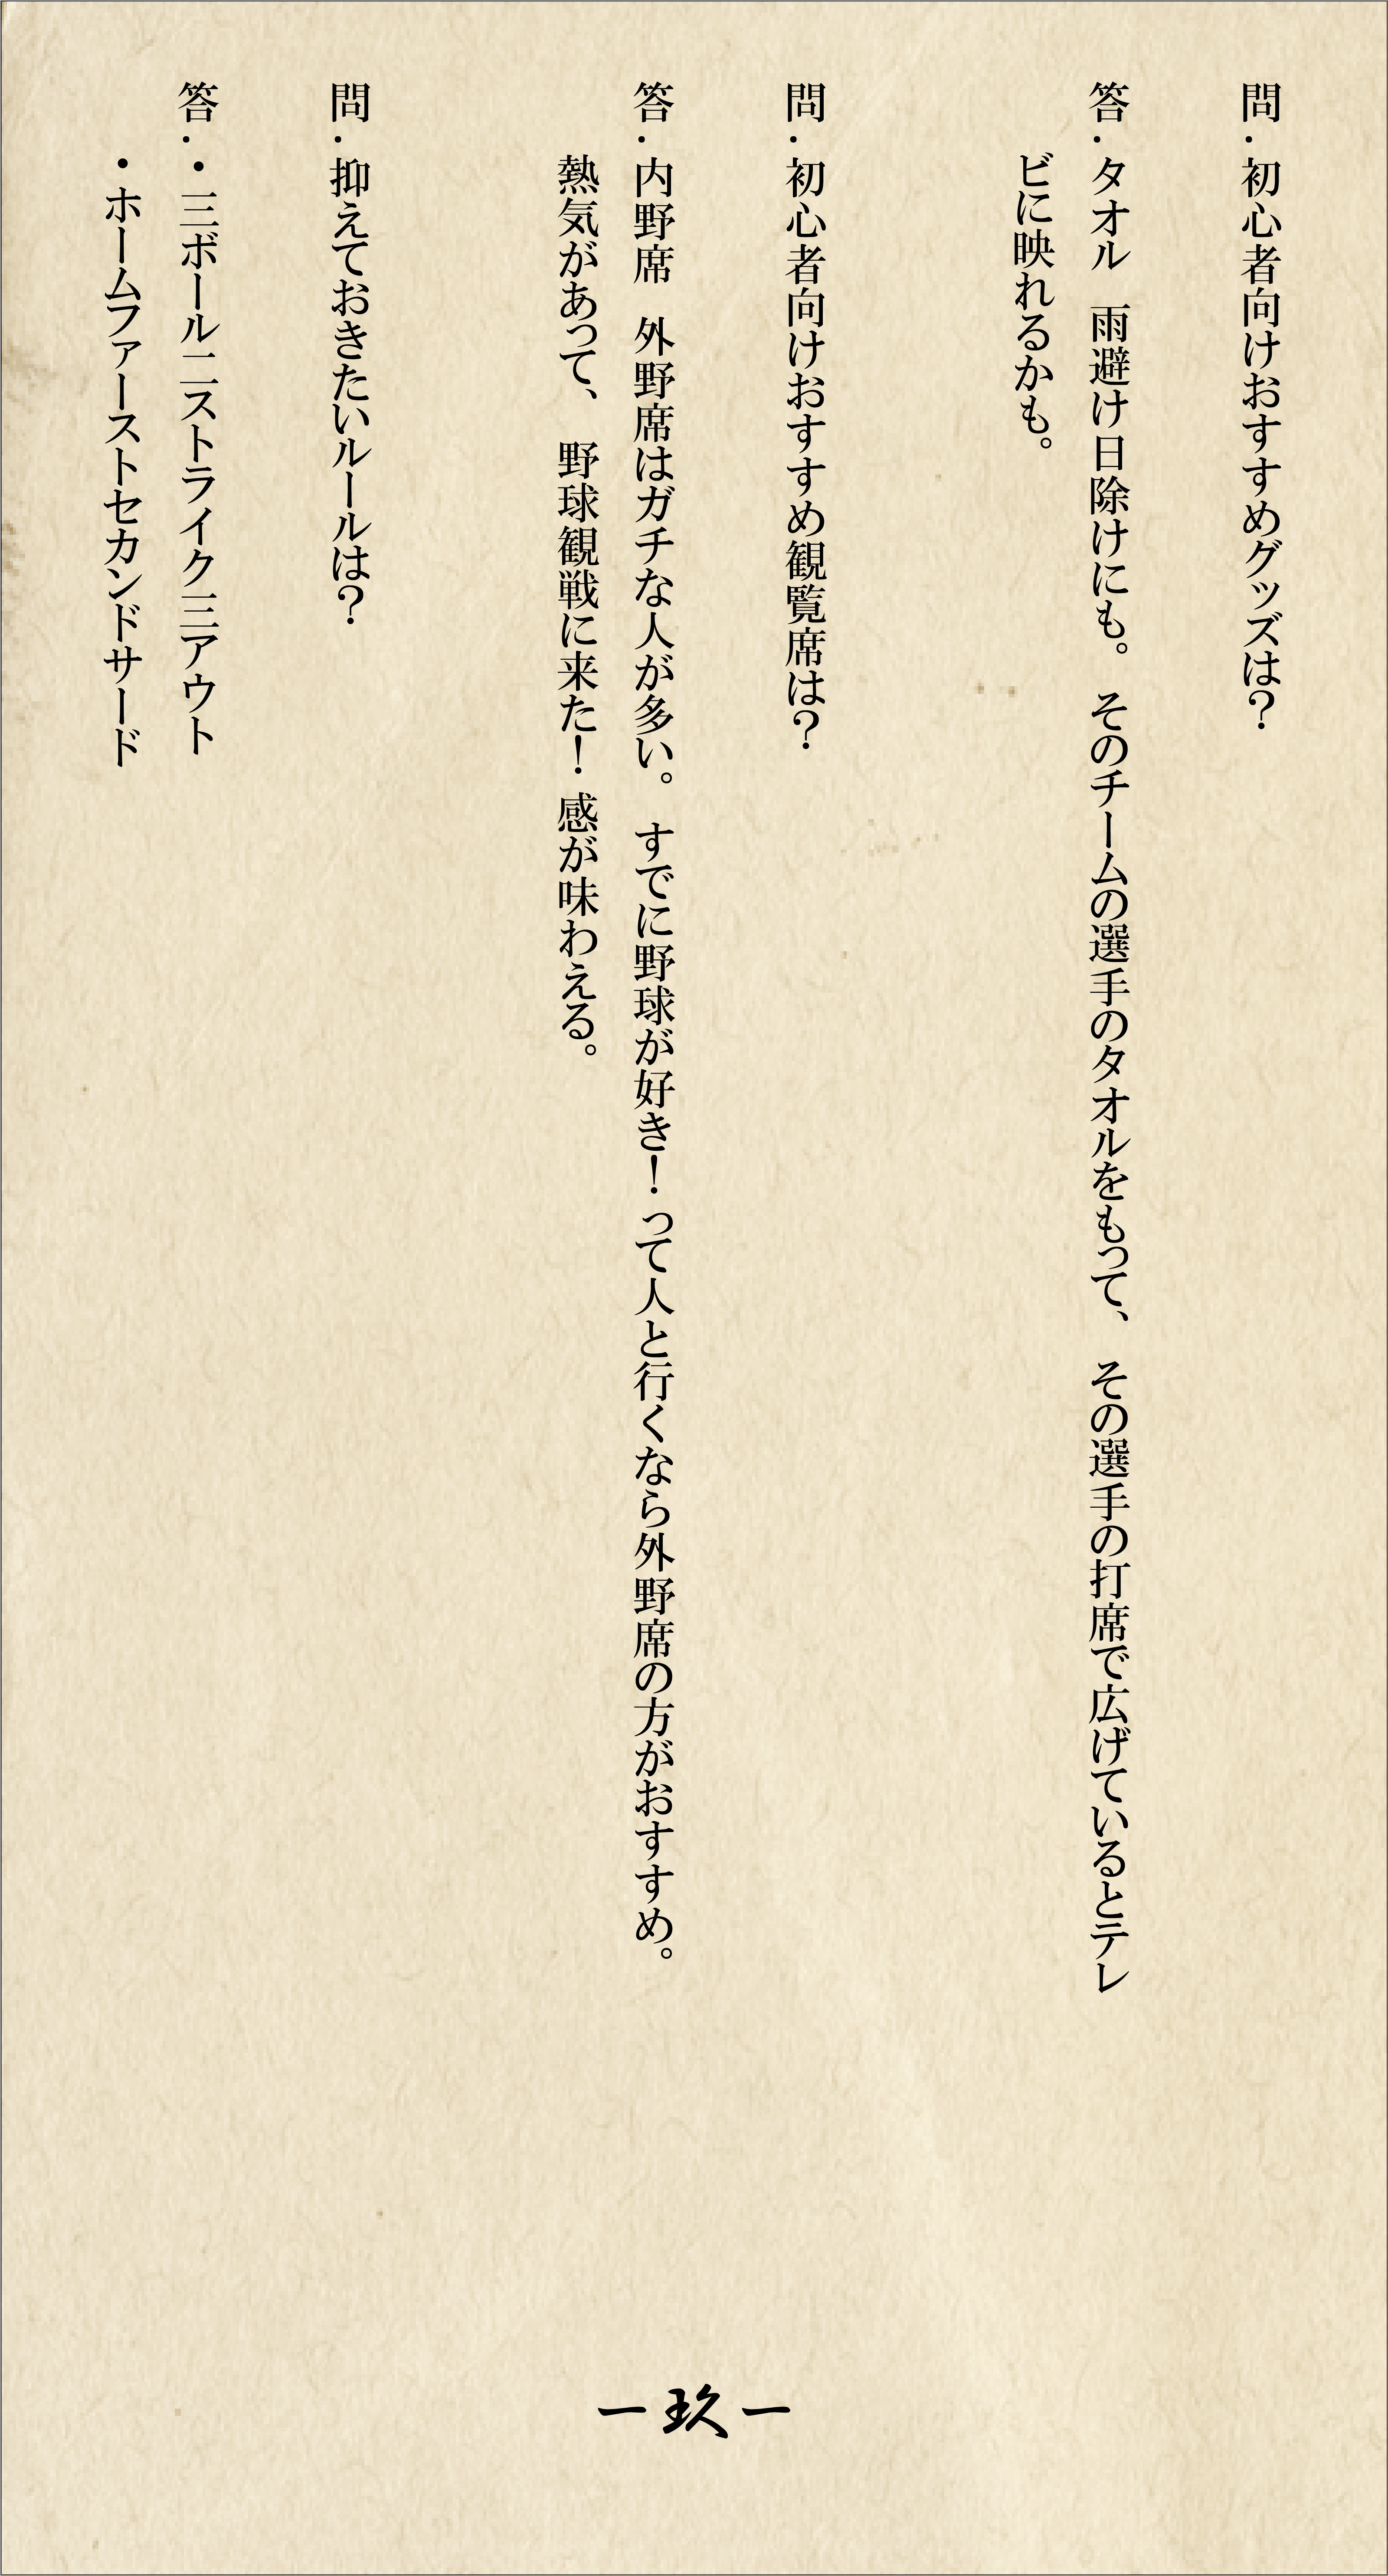 問.初心者向けおすすめグッズは？
答.タオル　雨避け日除けにも。そのチームの選手のタオルをもって、その選手の打席で広げているとテレ
ビに映れるかも。
問.初心者向けおすすめ観覧席は？
答.内野席　外野席はガチな人が多い。すでに野球が好き！って人と行くなら外野席の方がおすすめ。
熱気があって、野球観戦に来た！感が味わえる。
問.抑えておきたいルールは？
答.・三ボール二ストライク三アウト
・ホームファーストセカンドサード
ー玖ー